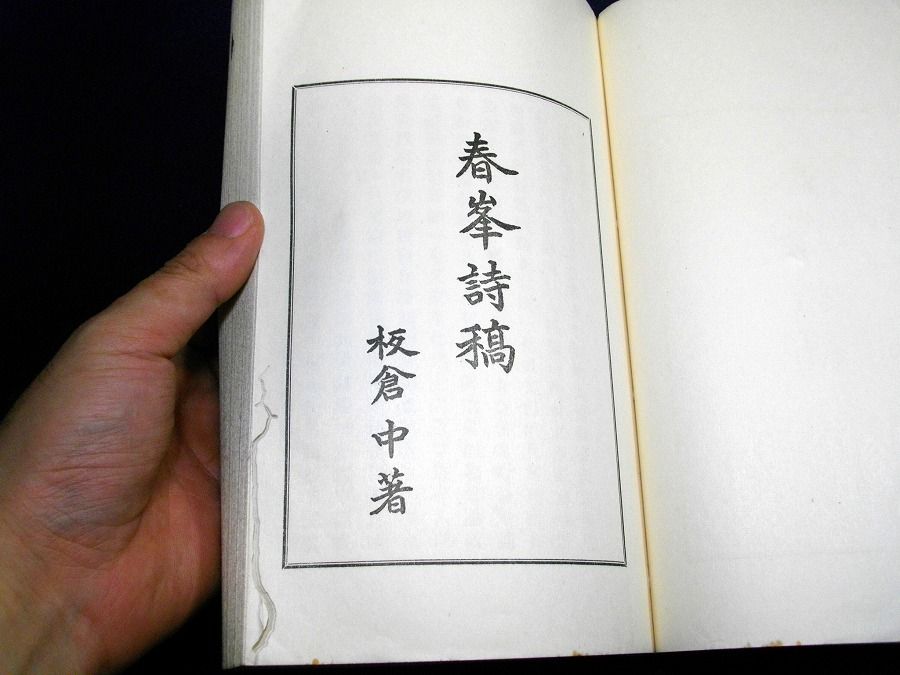 春峯詩稿
板倉中著